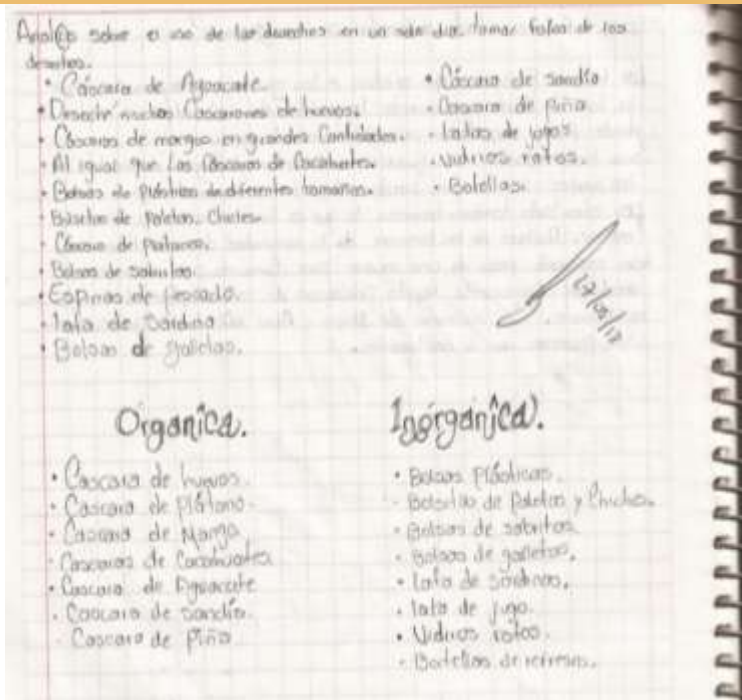 sobre el uso de los desechos en un solo día, tomar fotos de los
desechos.
• Cáscara de Aguacate.
• Deseché muchos Cascarones de huevos.
• Cáscaras de mango en grandes Cantidades.
• Al igual que Las Cáscaras de Cacahuates.
• Bolsas de plástico de diferentes tamaños.
• de Paletas, Chicles.
• Cáscara de
• Bolsas de sabritas.
• Espinas de pescado.
• lata de Sardina
• Bolsas de galletas.
• Cáscara de sandía
• Cáscara de piña
• latas de jugos
• vidrios rotos.
• Botellas.
Organica.
• Cascara de huevos.
• Cascara de Plátano.
• Cascara de Mango
• Cascaras de Cacahuates
• Cascara de Aguacate
• Cascara de sandía.
• Cascara de Piña
Inórganica.
• Bolsas Plásticas.
• Bolsitas de Paletas y Chicles.
• Bolsas de sabritas.
• Bolsas de galletas.
• lata de sardinas.
• lata de jugo.
• Vidrios rotos.
• Botellas de refrescos.